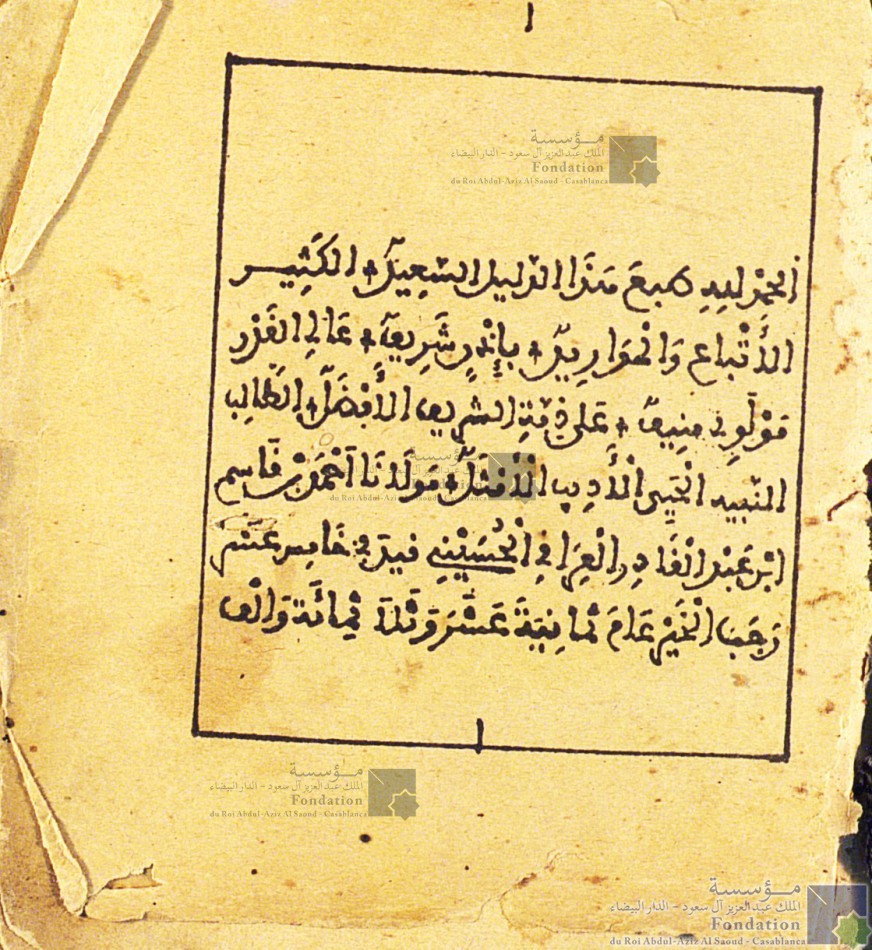 ا
مؤسسة
الملك عبدالعزيز آل سعود - الدار البيضاء
Fondation
du Roi Abdul-Aziz Al Saoud - Casablanca
الحمد لله طبع هذا الدليل السعيد الكثير
الأتباع والموارد بإذن شريف عالي القدر
مولوي منيف على ذمة الشريف الأفضل الطالب
النبيه المجيد الأديب الأمثل مولانا أحمد بن قاسم
مؤسسة
الملك عبدالعزيز آل سعود - الدار البيضاء
Fondation
du Roi Abdul-Aziz Al Saoud - Casablanca
ابن عبد القادر العراقي الحسيني في خامس عشر
رجب الخير عام ثمانية عشر وثلاثمائة وألف
مؤسسة
الملك عبدالعزيز آل سعود - الدار البيضاء
Fondation
du Roi Abdul-Aziz Al Saoud - Casablanca
مؤسسة
الملك عبدالعزيز آل سعود - الدار البيضاء
Fondation
du Roi Abdul-Aziz Al Saoud - Casablanca